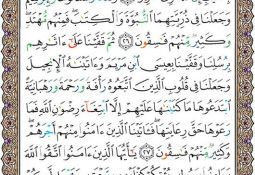 وَجَعَلْنَا فِي ذُرِّيَّتِهِمَا ٱلنُّبُوَّةَ وَٱلْكِتَٰبَ فَمِنْهُم مُّهْتَدٍ
وَكَثِيرٌ مِّنْهُمْ فَٰسِقُونَ ٢٦ ثُمَّ قَفَّيْنَا عَلَىٰٓ ءَاثَٰرِهِم
بِرُسُلِنَا وَقَفَّيْنَا بِعِيسَى ٱبْنِ مَرْيَمَ وَءَاتَيْنَٰهُ ٱلْإِنجِيلَ
وَجَعَلْنَا فِي قُلُوبِ ٱلَّذِينَ ٱتَّبَعُوهُ رَأْفَةً وَرَحْمَةً وَرَهْبَانِيَّةً
ٱبْتَدَعُوهَا مَا كَتَبْنَٰهَا عَلَيْهِمْ إِلَّا ٱبْتِغَآءَ رِضْوَٰنِ ٱللَّهِ فَمَا
رَعَوْهَا حَقَّ رِعَايَتِهَا فَـَٔاتَيْنَا ٱلَّذِينَ ءَامَنُوا۟ مِنْهُمْ أَجْرَهُمْ
وَكَثِيرٌ مِّنْهُمْ فَٰسِقُونَ ٢٧ يَٰٓأَيُّهَا ٱلَّذِينَ ءَامَنُوا۟ ٱتَّقُوا۟ ٱللَّهَ